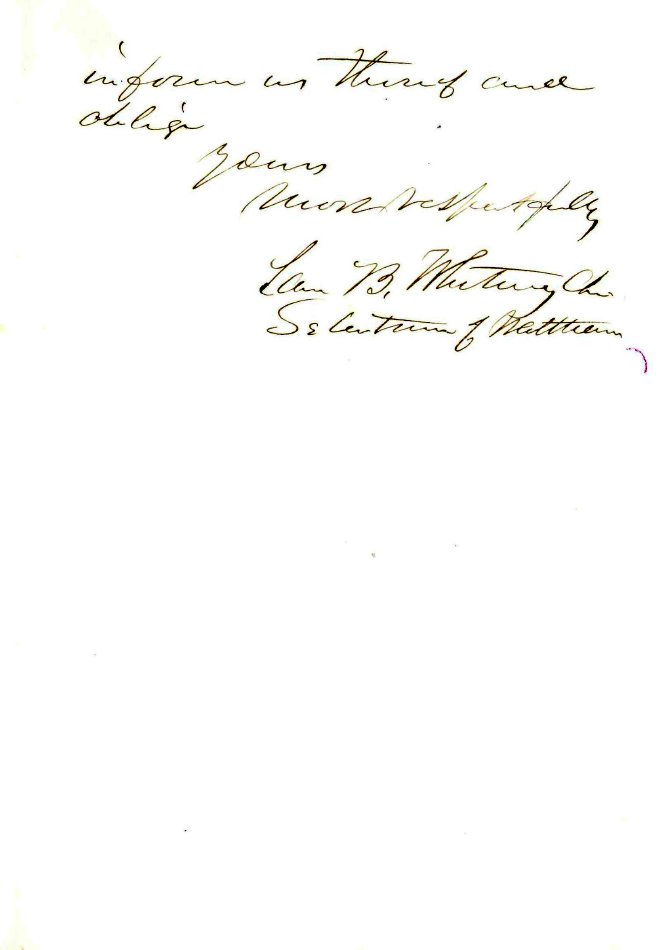 inform us thereof and
oblige
Yours
Most respectfully
Sam B. Whitney Chn
Selectmen of Waltham